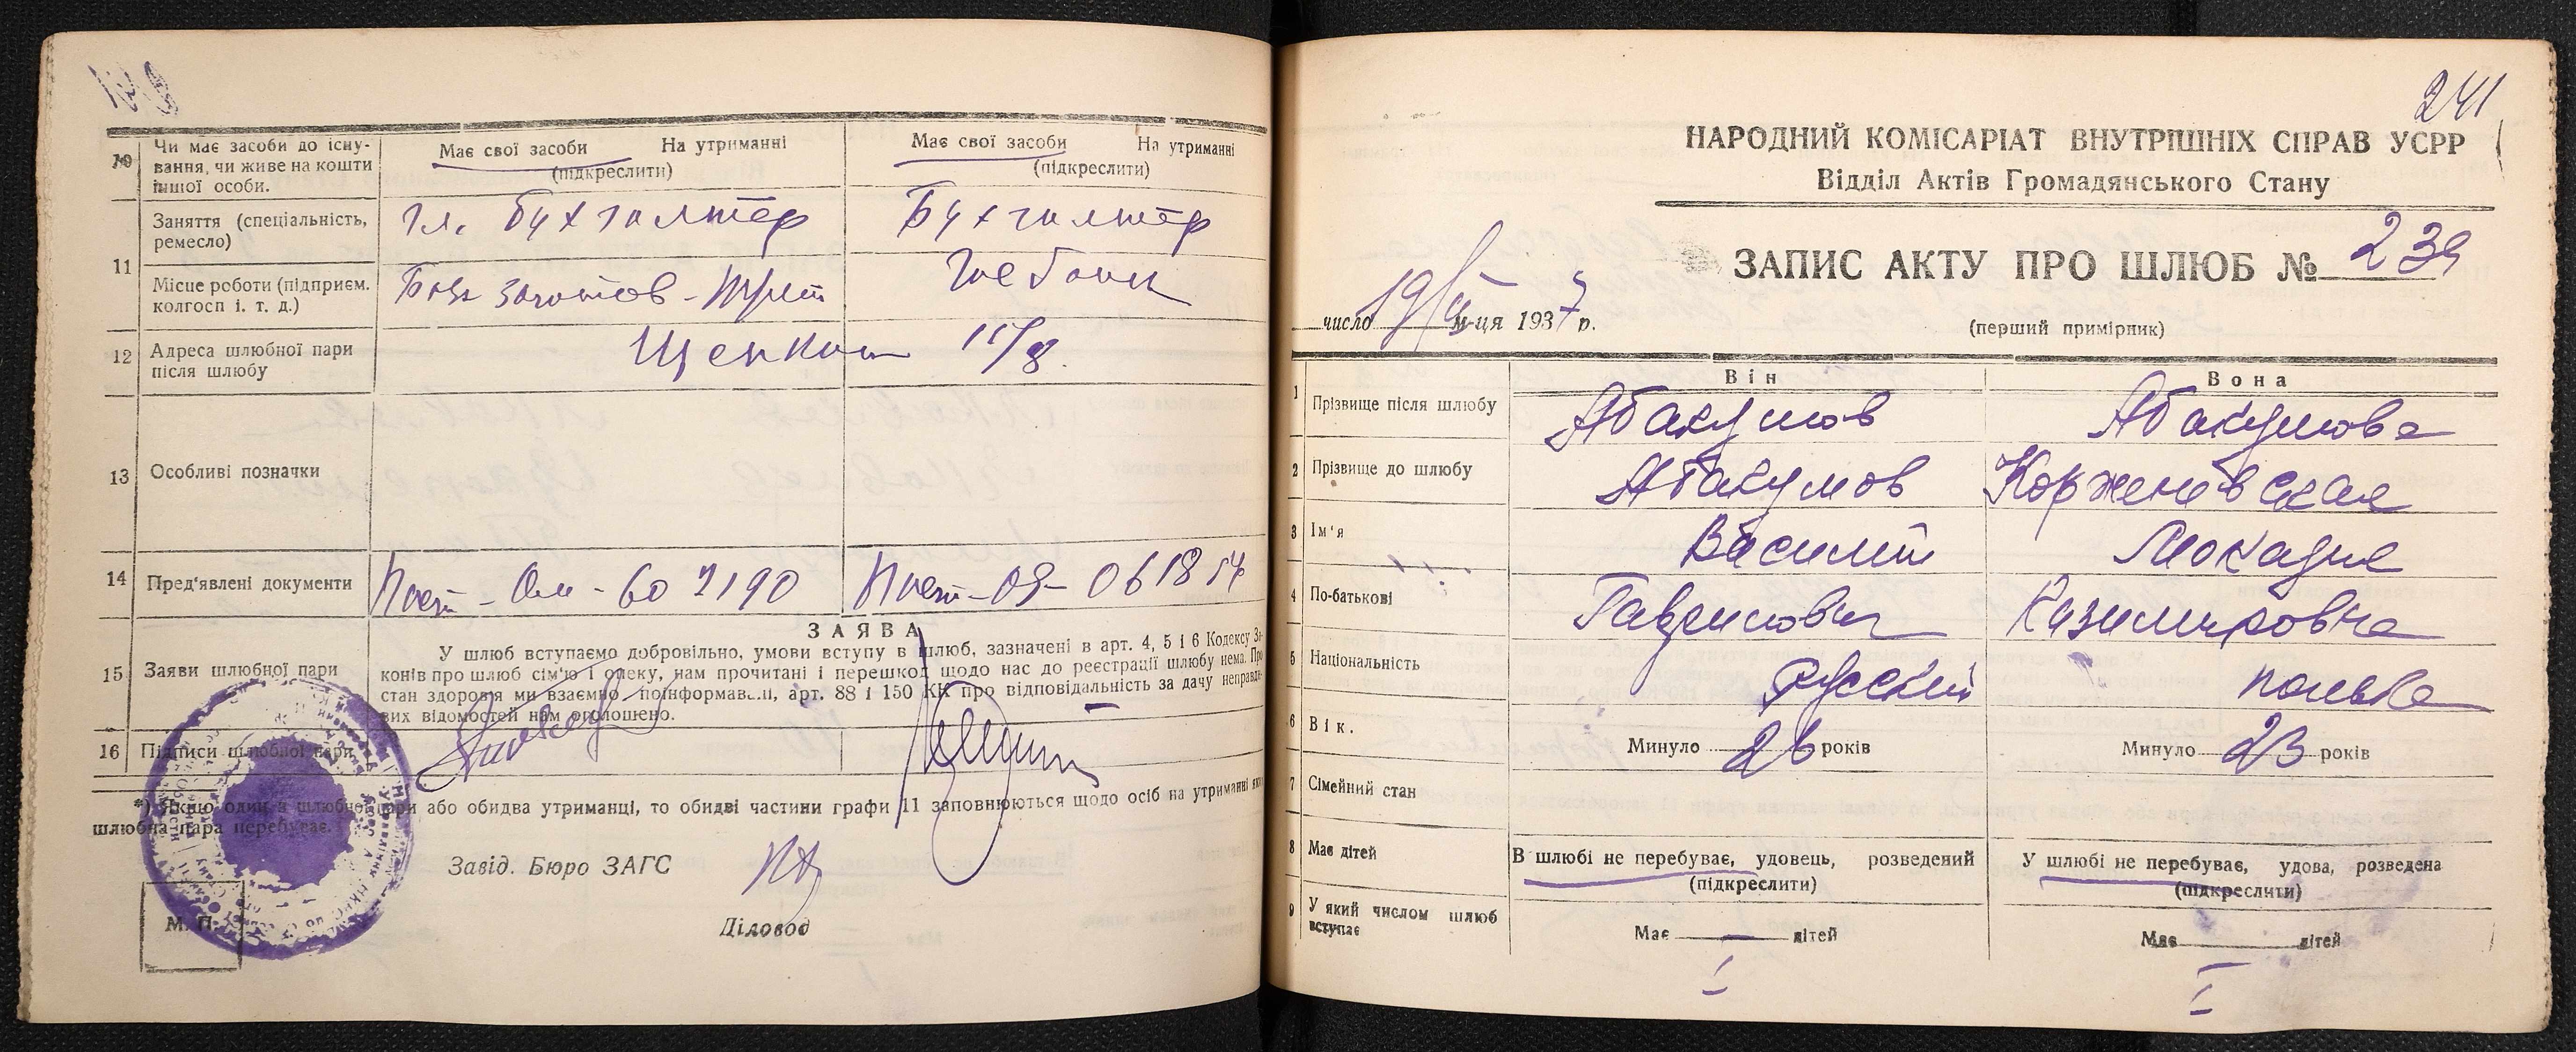 Чи має засоби до існу-
10 вання, чи живе на кошти
іншої особи.
Має свої засоби На утриманні
(підкреслити)
Має свої засоби На утриманні
(підкреслити)
11 Заняття (спеціальність,
ремесло)
Гл. Бухгалтер
Бухгалтер
Місце роботи (підприєм.
колгосп і. т. д.)
12 Адреса шлюбної пари
після шлюбу
13 Особливі позначки
14 Пред'явлені документи
15 Заяви шлюбної пари
ЗАЯВА
У шлюб вступаємо добровільно, умови вступу в шлюб, зазначені в арт. 4, 5 і 6 Кодексу За-
конів про шлюб сім'ю і опеку, нам прочитані і перешкод щодо нас до реєстрації шлюбу нема. Про
стан здоров'я ми взаємно поінформавали, арт. 88 і 150 КК про відповідальність за дачу неправди-
вих відомостей нам оголошено.
16 Підписи шлюбної пари
*) Якщо один з шлюбної пари або обидва утриманці, то обидві частини графи 11 заповнюються щодо осіб на утриманні яких
шлюбна пара перебуває.
Завід. Бюро ЗАГС
Діловод
М. П.
241
НАРОДНИЙ КОМІСАРІАТ ВНУТРІШНІХ СПРАВ УСРР
Відділ Актів Громадянського Стану
ЗАПИС АКТУ ПРО ШЛЮБ № 239
число 19 м-ця 1937 р.
(перший примірник)
Він Вона
1 Прізвище після шлюбу Абакумов Абакумова
2 Прізвище до шлюбу Абакумов Корженевская
3 Ім'я Василий Леокадия
4 По-батькові Гаврилович Казимировна
5 Національність русский полька
6 Вік. Минуло 26 років Минуло 23 років
7 Сімейний стан
В шлюбі не перебуває, удовець, розведений
(підкреслити)
У шлюбі не перебуває, удова, розведена
(підкреслити)
8 Має дітей
Має — дітей
Має дітей
9 У який числом шлюб
вступає
I
I